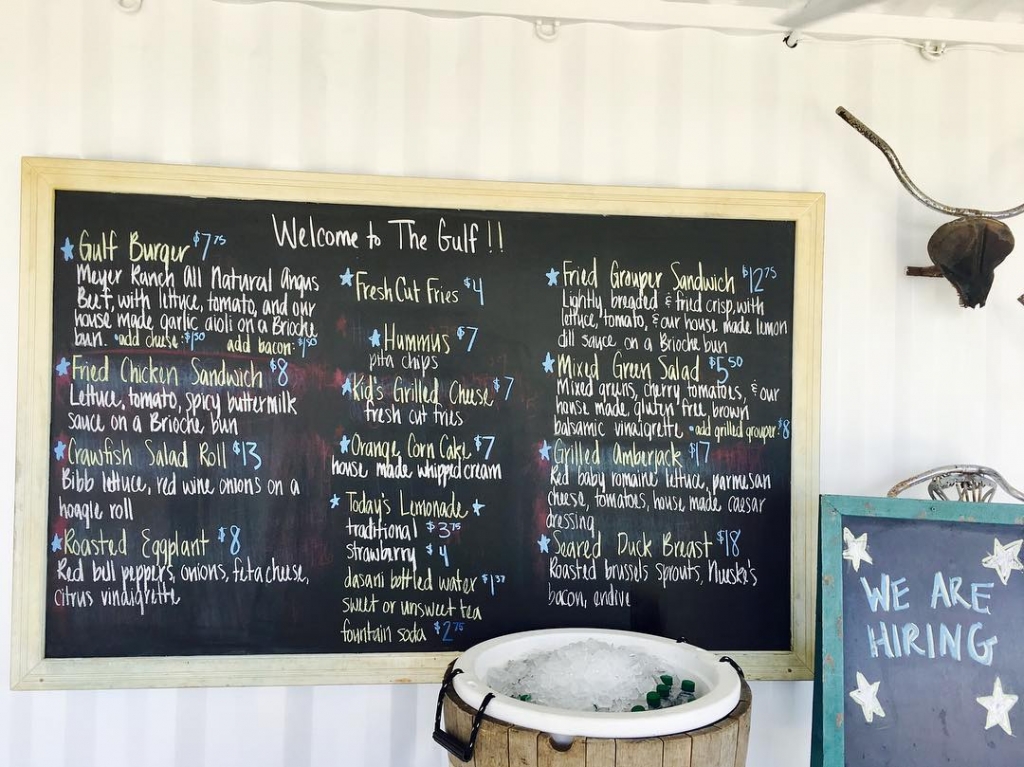 Welcome to The Gulf!!
Gulf Burger $7.75
Meyer Ranch All Natural Angus
Beef, with lettuce, tomato, and our
house made garlic aioli on a Brioche
bun. •add cheese: $1.50 add bacon: $1.50
Fried Chicken Sandwich $8
Lettuce, tomato, spicy buttermilk
sauce on a Brioche bun
Crawfish Salad Roll $13
Bibb lettuce, red wine onions on a
hoagie roll
Roasted Eggplant $8
Red bell peppers, onions, feta cheese,
citrus vinaigrette
Fresh Cut Fries $4
Hummus $7
pita chips
Kid's Grilled Cheese $7
fresh cut fries
Orange Corn Cake $7
house made whipped cream
Today's Lemonade
traditional $3.75
strawberry $4
dasani bottled water
sweet or unsweet tea
fountain soda $2.75
Fried Grouper Sandwich $12.75
Lightly breaded & fried crisp, with
lettuce, tomato, & our house made lemon
dill sauce on a Brioche bun
Mixed Green Salad $5.50
Mixed greens, cherry tomatoes, & our
house made, gluten free, brown
balsamic vinaigrette •add grilled grouper: $8
Grilled Amberjack $17
Red baby romaine lettuce, parmesan
cheese, tomatoes, house made caesar
dressing
Seared Duck Breast $18
Roasted brussels sprouts, Nueske's
bacon, endive
WE ARE
HIRING